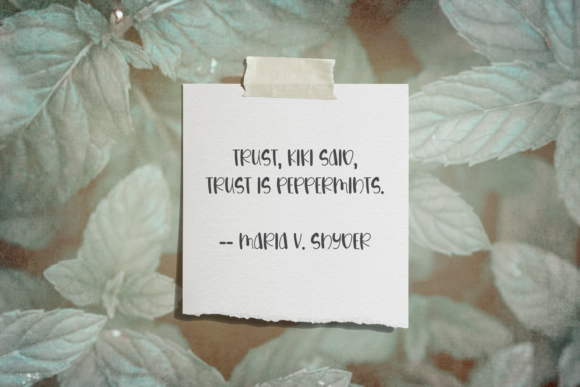 TRUST, KIKI SAID,
TRUST IS PEPPERMINTS.
-- MARIA V. SNYDER